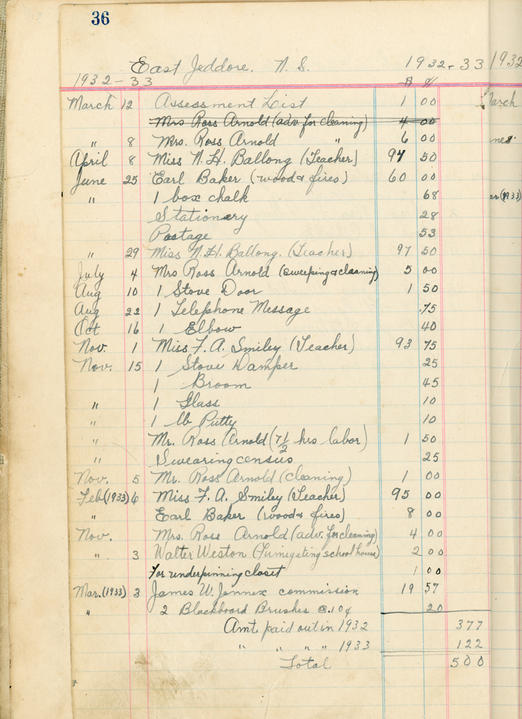 36
East Jeddore. N. S. 1932-33 1932
1932-33 $ ¢
March 12 Assessment List 1 00 March
Mrs Ross Arnold (adv. for cleaning) 4 00
" 8 Mrs. Ross Arnold " 6 00
April 8 Miss N. H. Ballong (Teacher) 97 50
June 25 Earl Baker (wood & fires) 60 00
" 1 box chalk 68 (1933)
Stationery 28
Postage 53
" 29 Miss N. H. Ballong. (Teacher) 97 50
July 4 Mrs Ross Arnold (sweeping & cleaning) 5 00
Aug 10 1 Stove Door 1 50
Aug 22 1 Telephone Message .75
Oct 16 1 Elbow 40
Nov. 1 Miss F. A. Smiley (Teacher) 93 75
Nov. 15 1 Stove Damper 25
1 Broom 45
" 1 Glass 10
" 1 lb Putty 10
" Mr. Ross Arnold (7 1/2 hrs labor) 1 50
" Swearing census 25
Nov. 5 Mr. Ross Arnold (cleaning) 1 00
Feb (1933) 6 Miss F. A. Smiley (Teacher) 95 00
" Earl Baker (wood & fires) 8 00
Nov. Mrs. Ross Arnold (adv. for cleaning) 4 00
" 3 Walter Weston (Fumigating school house) 2 00
For underpinning closet 1 00
Mar. (1933) 3 James W. Jennex commission 19 57
" 2 Blackboard Brushes @ .10¢ 20
Amt. paid out in 1932 377
" " " " 1933 122
Total 500